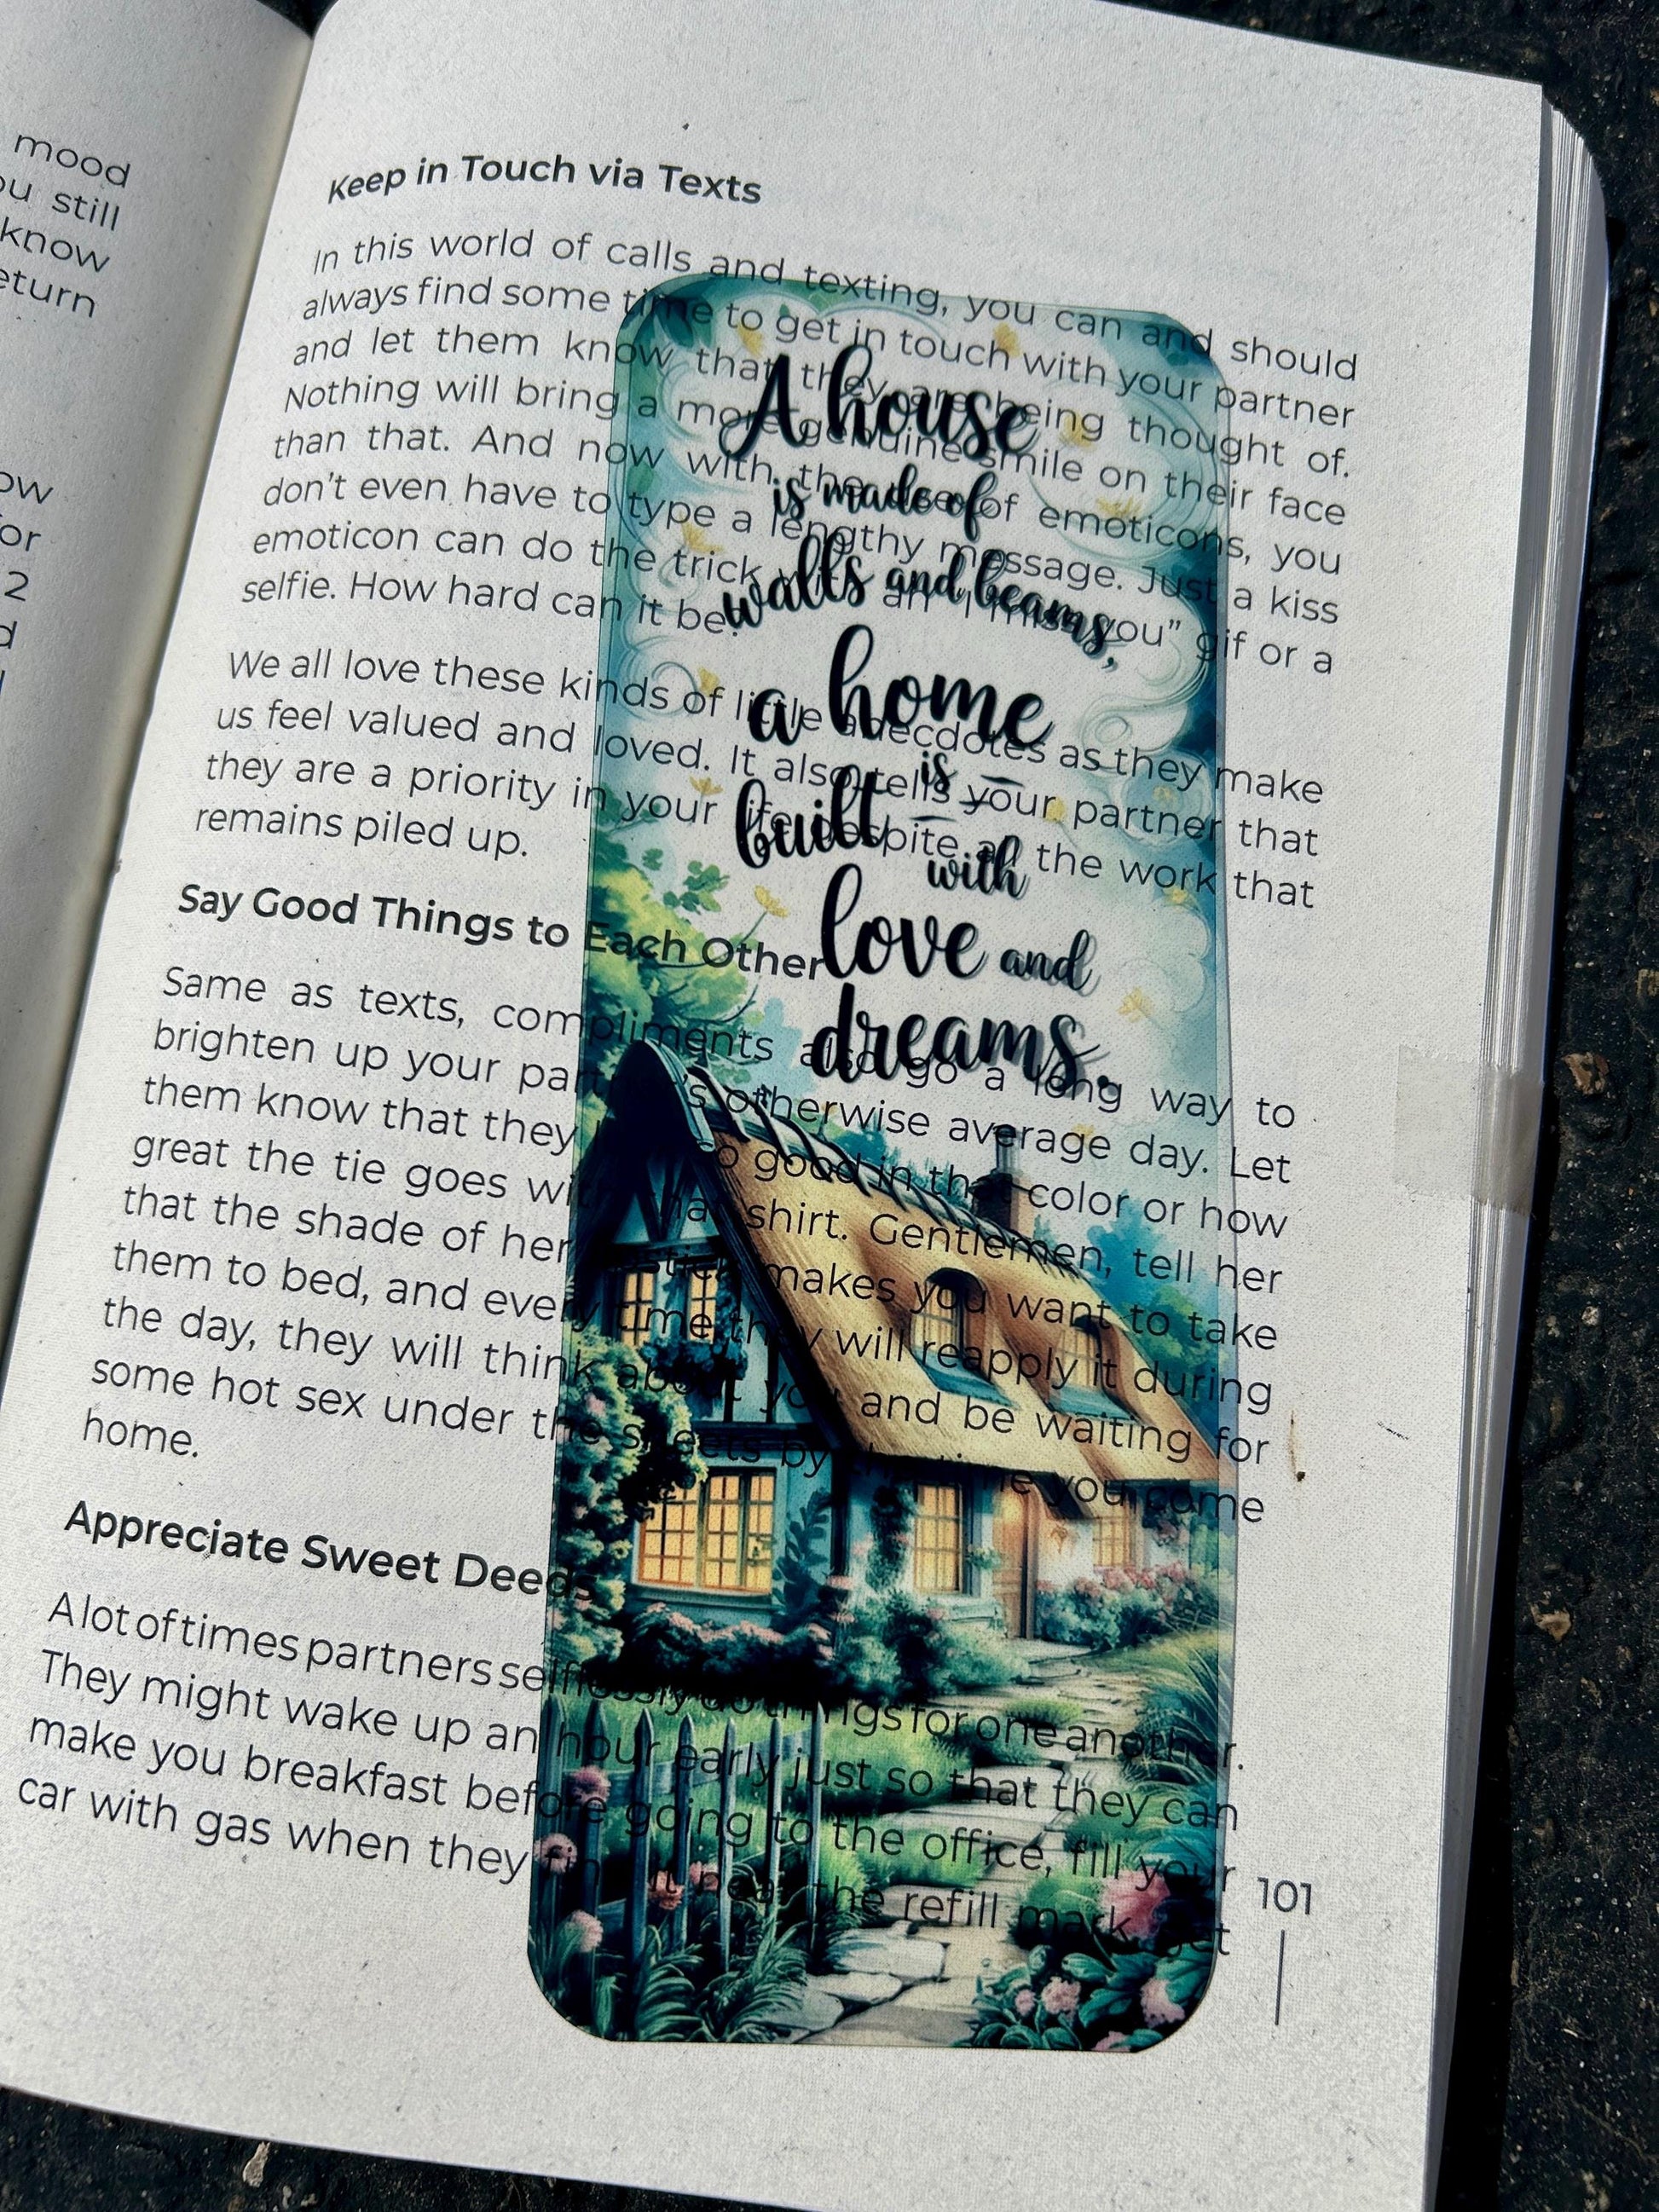 mood
ou still
know
eturn
ow
or
2
d
Keep in Touch via Texts
In this world of calls and texting, you can and should
always find some time to get in touch with your partner
and let them know that they are being thought of.
Nothing will bring a more genuine smile on their face
than that. And now with the use of emoticons, you
don't even have to type a lengthy message. Just a kiss
emoticon can do the trick an "I miss you" gif or a
selfie. How hard can it be?
We all love these kinds of little anecdotes as they make
us feel valued and loved. It also tells your partner that
they are a priority in your life despite all the work that
remains piled up.
Say Good Things to Each Other
Same as texts, compliments also go a long way to
brighten up your partner's otherwise average day. Let
them know that they so good in that color or how
great the tie goes with that shirt. Gentlemen, tell her
that the shade of her lipstick makes you want to take
them to bed, and every time they will reapply it during
the day, they will think about you and be waiting for
some hot sex under the sheets by the time you come
home.
Appreciate Sweet Deeds
A lot of times partners selflessly do things for one another.
They might wake up an hour early just so that they can
make you breakfast before going to the office, fill your
car with gas when they find it near the refill mark, get
101
A house
is made of
walls and beams,
a home
is
built
with
love and
dreams.